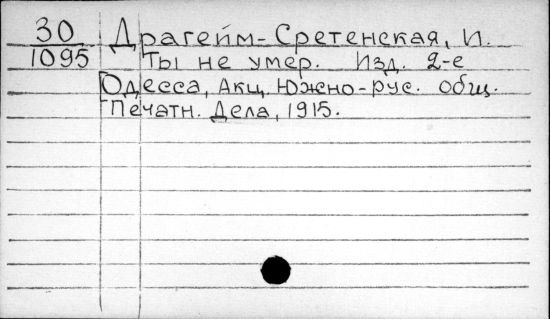 30 Драгейм-Сретенская, И.
1095 Ты не умер. Изд. 2-е
Одесса, Акц. Южно-рус. общ.
Печатн. Дела, 1915.